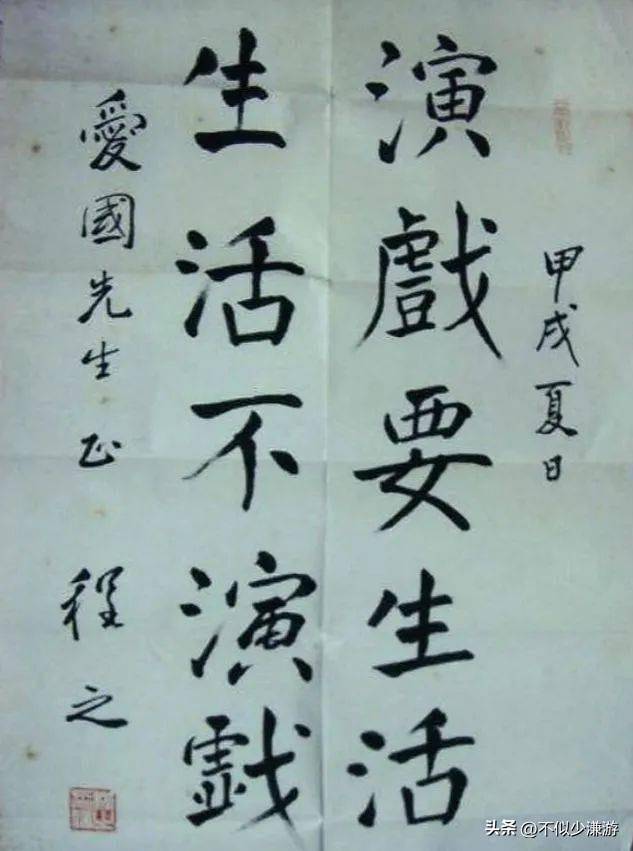 甲戌夏日
演戲要生活
生活不演戲
愛國先生正
程之
头条 @不似少谦游